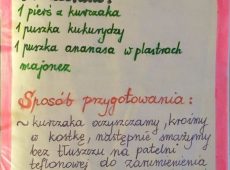 1 pierś z kurczaka
1 puszka kukurydzy
1 puszka ananasa w plastrach
majonez
Sposób przygotowania:
~ kurczaka oczyszczamy, kroimy
w kostkę, następnie smażymy
bez tłuszczu na patelni
teflonowej do zarumienienia